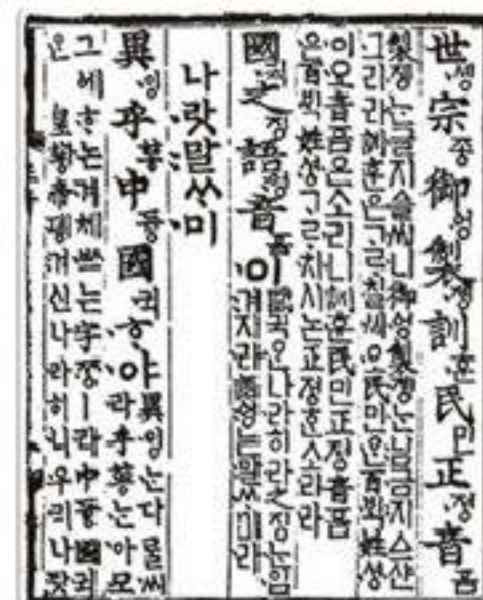 世솅宗종御엉製졩訓훈民민正졍音음
製졩는글지ᅀᅳᆯ씨니御엉製졩는님금지ᅀᅳ샨
그리라訓훈은ᄀᆞᄅᆞ칠씨오民민은百ᄇᆡᆨ姓셩
이오音음은소리니訓훈民민正졍音음
은百ᄇᆡᆨ姓셩ᄀᆞᄅᆞ치시논正졍ᄒᆞᆫ소리라
國귁之징語엉音음이
國귁은나라히라之징ᄂᆞᆫ입
겨지라語엉는말ᄊᆞ미라
나랏말ᄊᆞ미
異잉乎ᅘᅩᆼ中듕國귁ᄒᆞ야
異잉는다ᄅᆞᆯ씨
라乎ᅘᅩᆼ는아모
그ᅌᅦᄒᆞ논겨체ᄡᅳ는字ᄍᆞᆼㅣ라中듕國귁
은皇황帝뎽겨신나라히니우리나랏